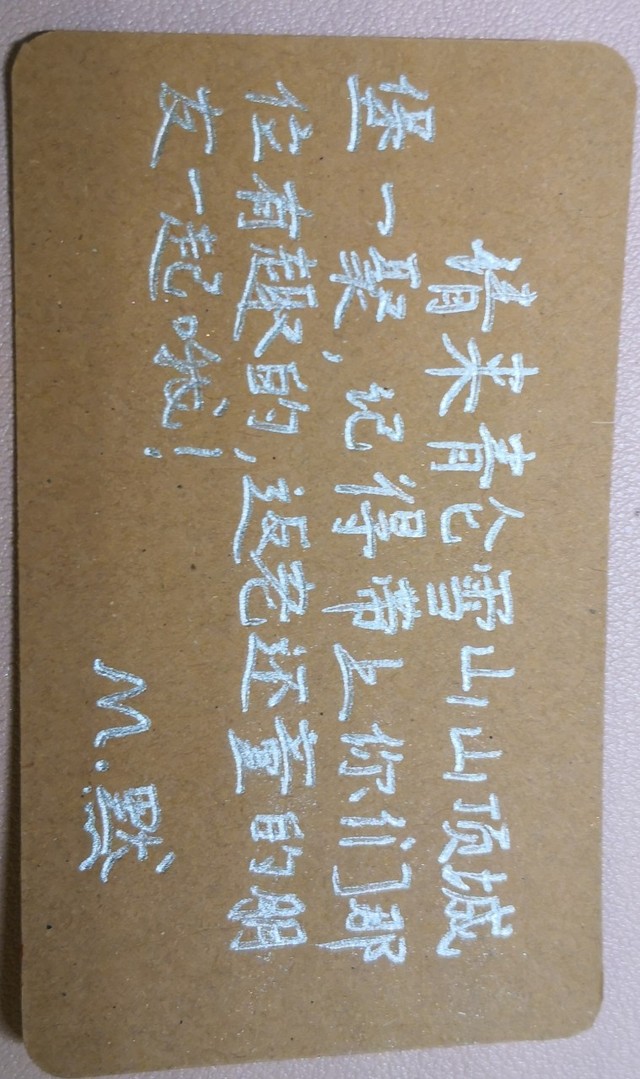 请来青仑雪山山顶城
堡一聚，记得带上你们那
位有趣的，返老还童的朋
友一起哦！
M.默